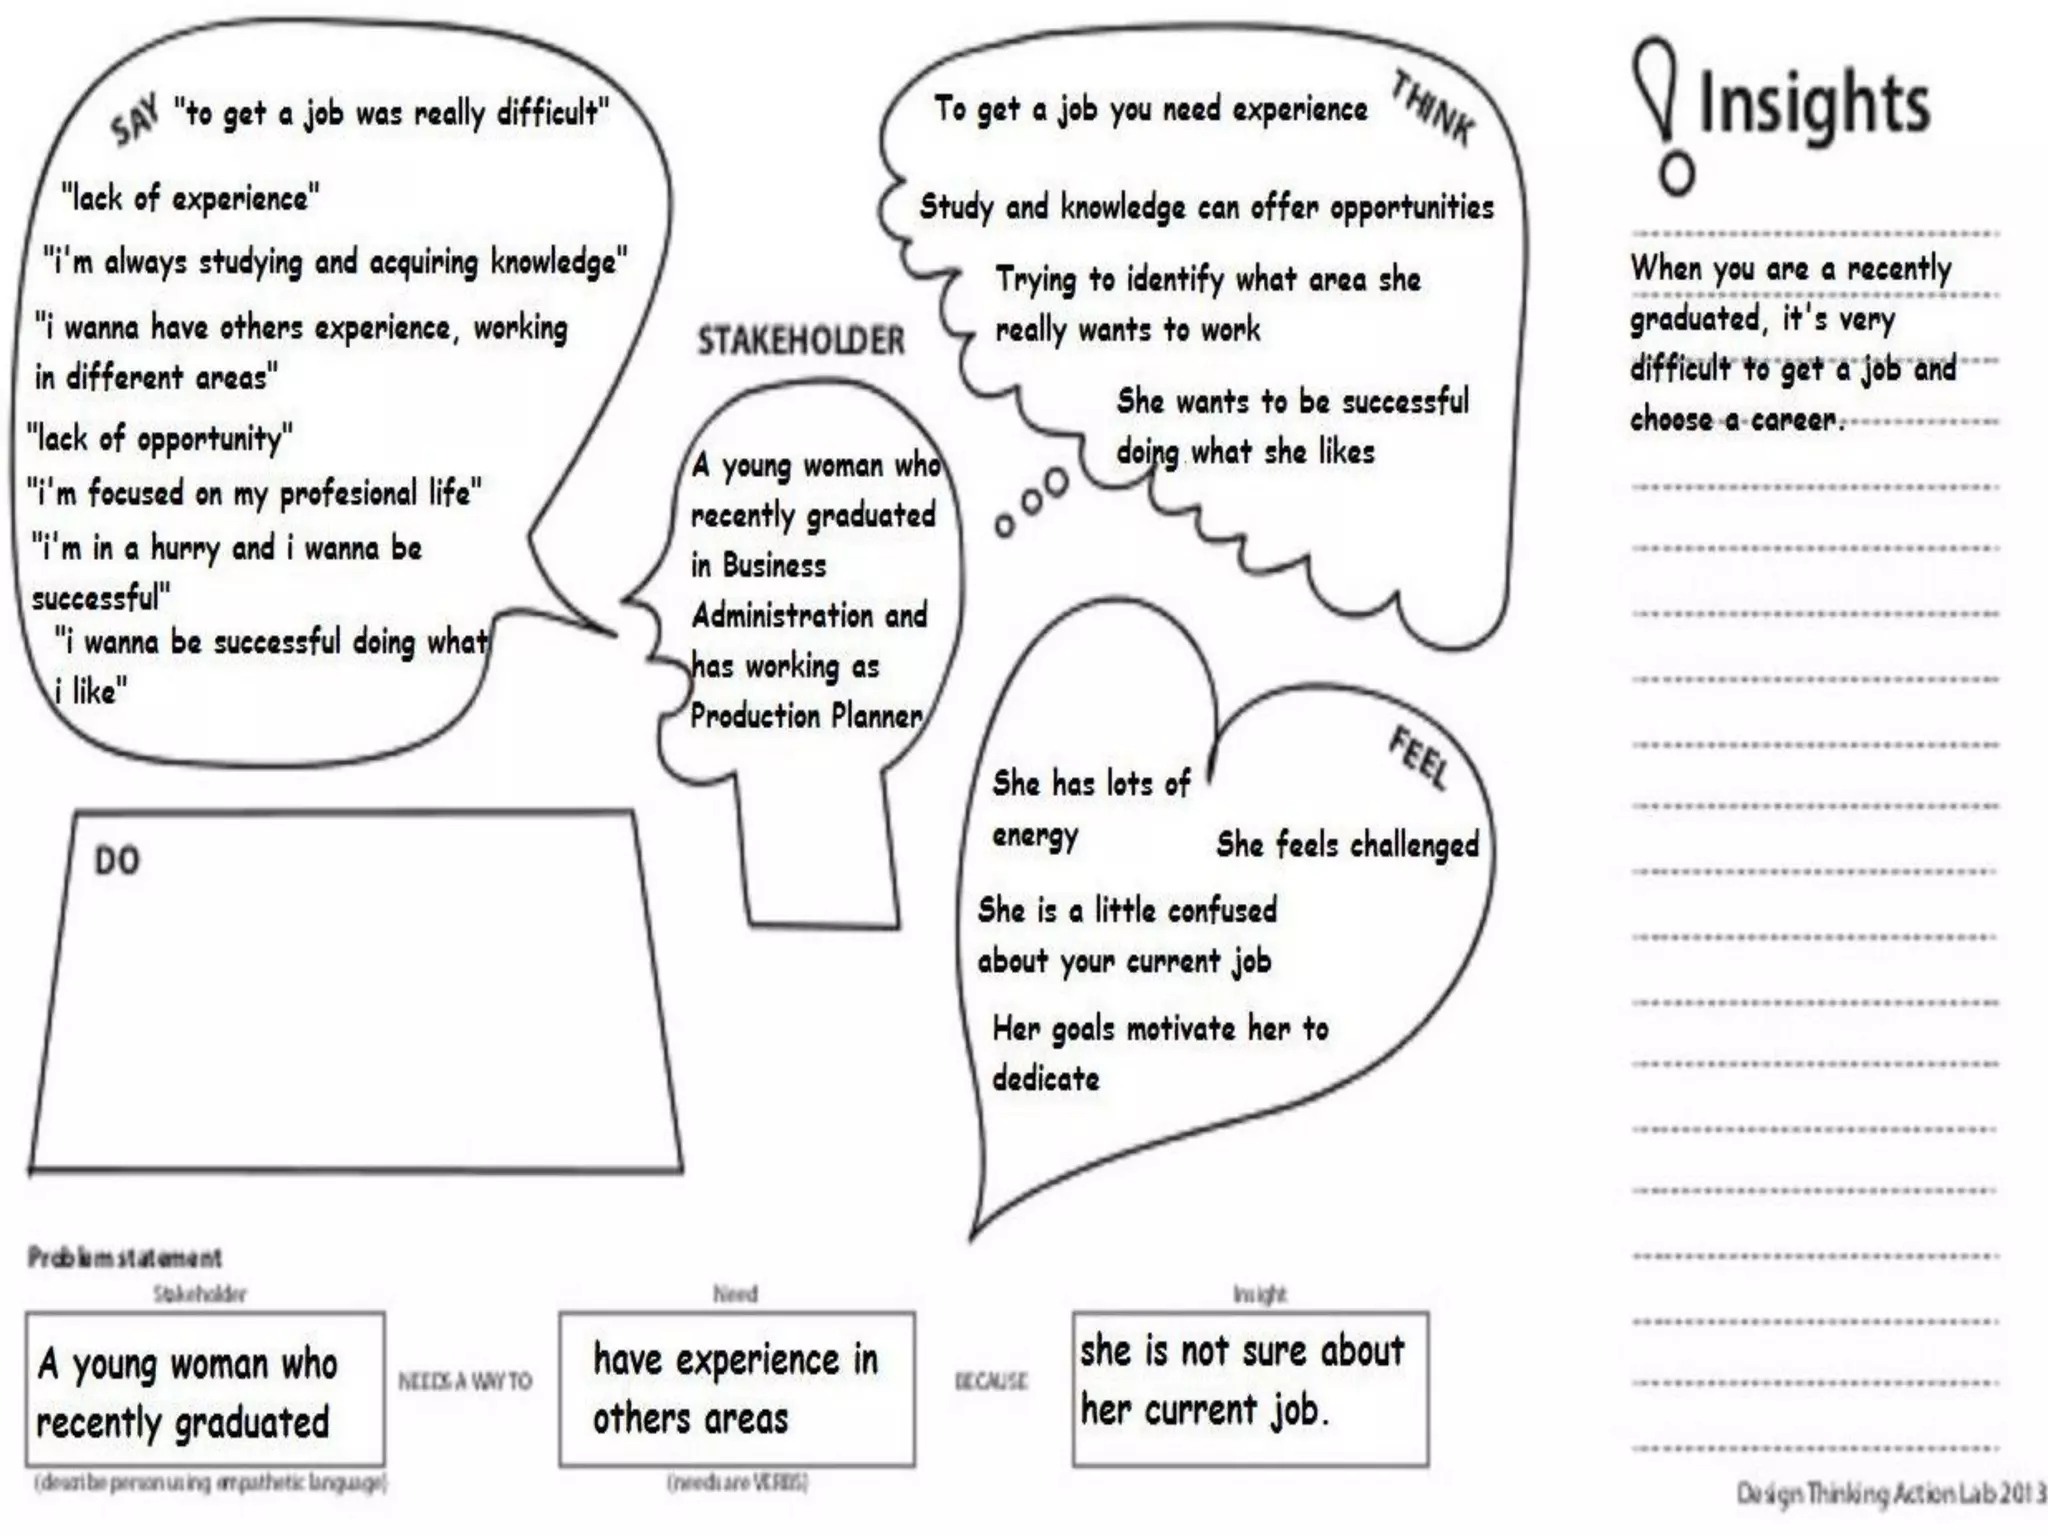 SAY "to get a job was really difficult"
"lack of experience"
"i'm always studying and acquiring knowledge"
"i wanna have others experience, working
in different areas"
"lack of opportunity"
"i'm focused on my profesional life"
"i'm in a hurry and i wanna be
successful"
"i wanna be successful doing what
i like"
STAKEHOLDER
A young woman who
recently graduated
in Business
Administration and
has working as
Production Planner
THINK
To get a job you need experience
Study and knowledge can offer opportunities
Trying to identify what area she
really wants to work
She wants to be successful
doing what she likes
FEEL
She has lots of
energy
She feels challenged
She is a little confused
about your current job
Her goals motivate her to
dedicate
DO
Insights
When you are a recently
graduated, it's very
difficult to get a job and
choose a career.
Problem statement
Stakeholder
A young woman who
recently graduated
(describe person using empathetic language)
NEEDS A WAY TO
Need
have experience in
others areas
(needs are VERBS)
BECAUSE
Insight
she is not sure about
her current job.
Design Thinking Action Lab 2013